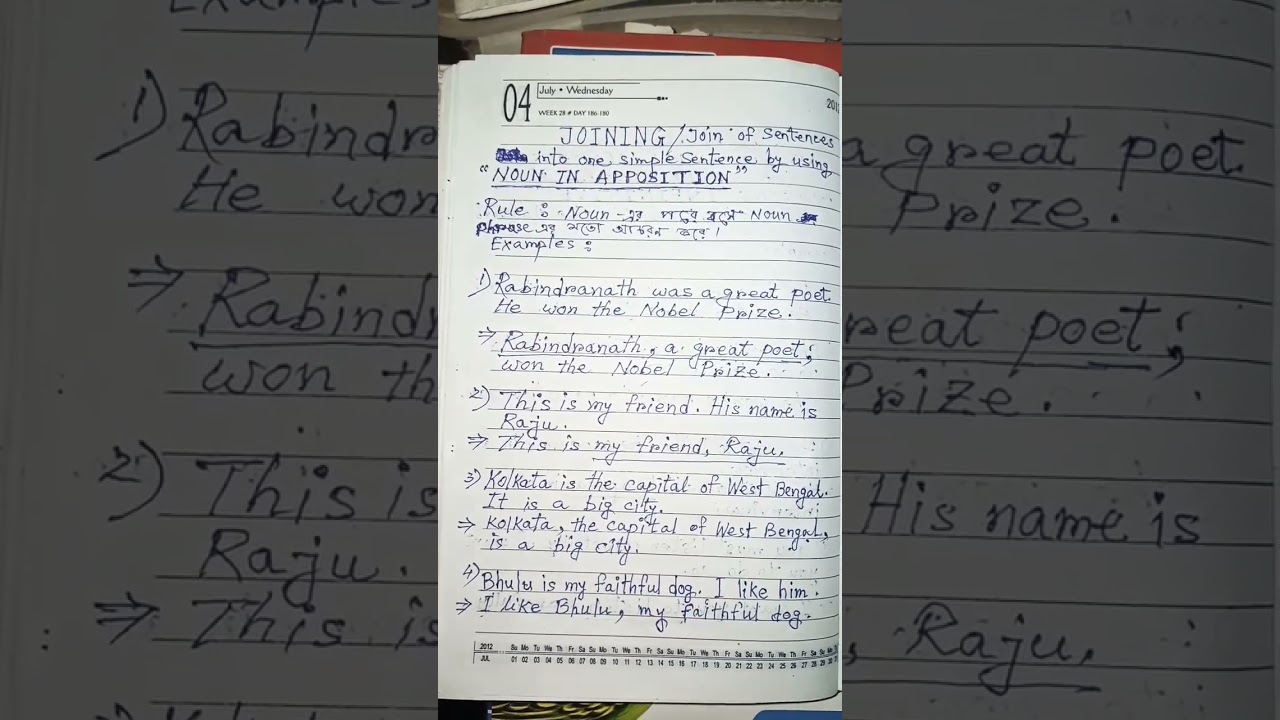 04
July • Wednesday
WEEK 28 # DAY 186-180
JOINING / Join of Sentences
into one simple sentence by using
"NOUN IN APPOSITION"
Rule : Noun-এর পরে বসে Noun
phrase এর মতো আচরন করে।
Examples :
1) Rabindranath was a great poet.
He won the Nobel Prize.
⇒ Rabindranath, a great poet,
won the Nobel Prize.
2) This is my friend. His name is
Raju.
⇒ This is my friend, Raju.
3) Kolkata is the capital of West Bengal.
It is a big city.
⇒ Kolkata, the capital of West Bengal,
is a big city.
4) Bhulu is my faithful dog. I like him.
⇒ I like Bhulu, my faithful dog.
2012 Su Mo Tu We Th Fr Sa Su Mo Tu We Th Fr Sa Su Mo Tu We Th Fr Sa Su Mo Tu We Th Fr Sa Su Mo
JUL 01 02 03 04 05 06 07 08 09 10 11 12 13 14 15 16 17 18 19 20 21 22 23 24 25 26 27 28 29 30